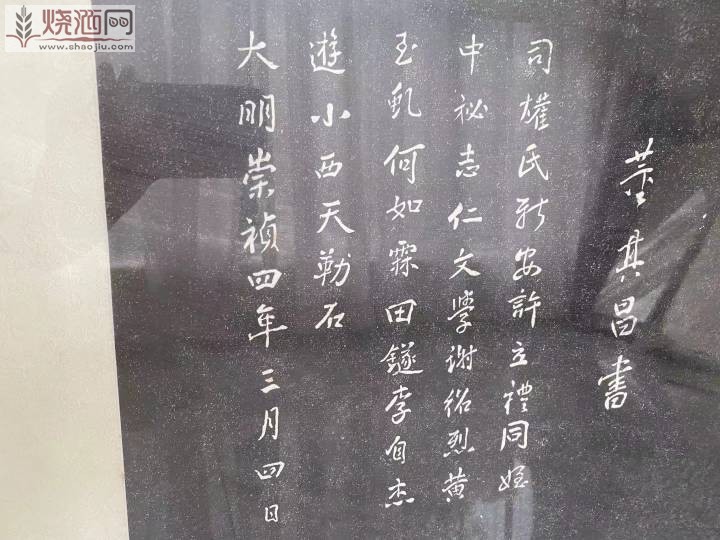 烧酒网
www.shaojiu.com
董其昌書
司榷氏新安許立禮同姪
中祕志仁文學謝紹烈黃
玉虬何如霖田鐩李自杰
遊小西天勒石
大明崇禎四年三月四日